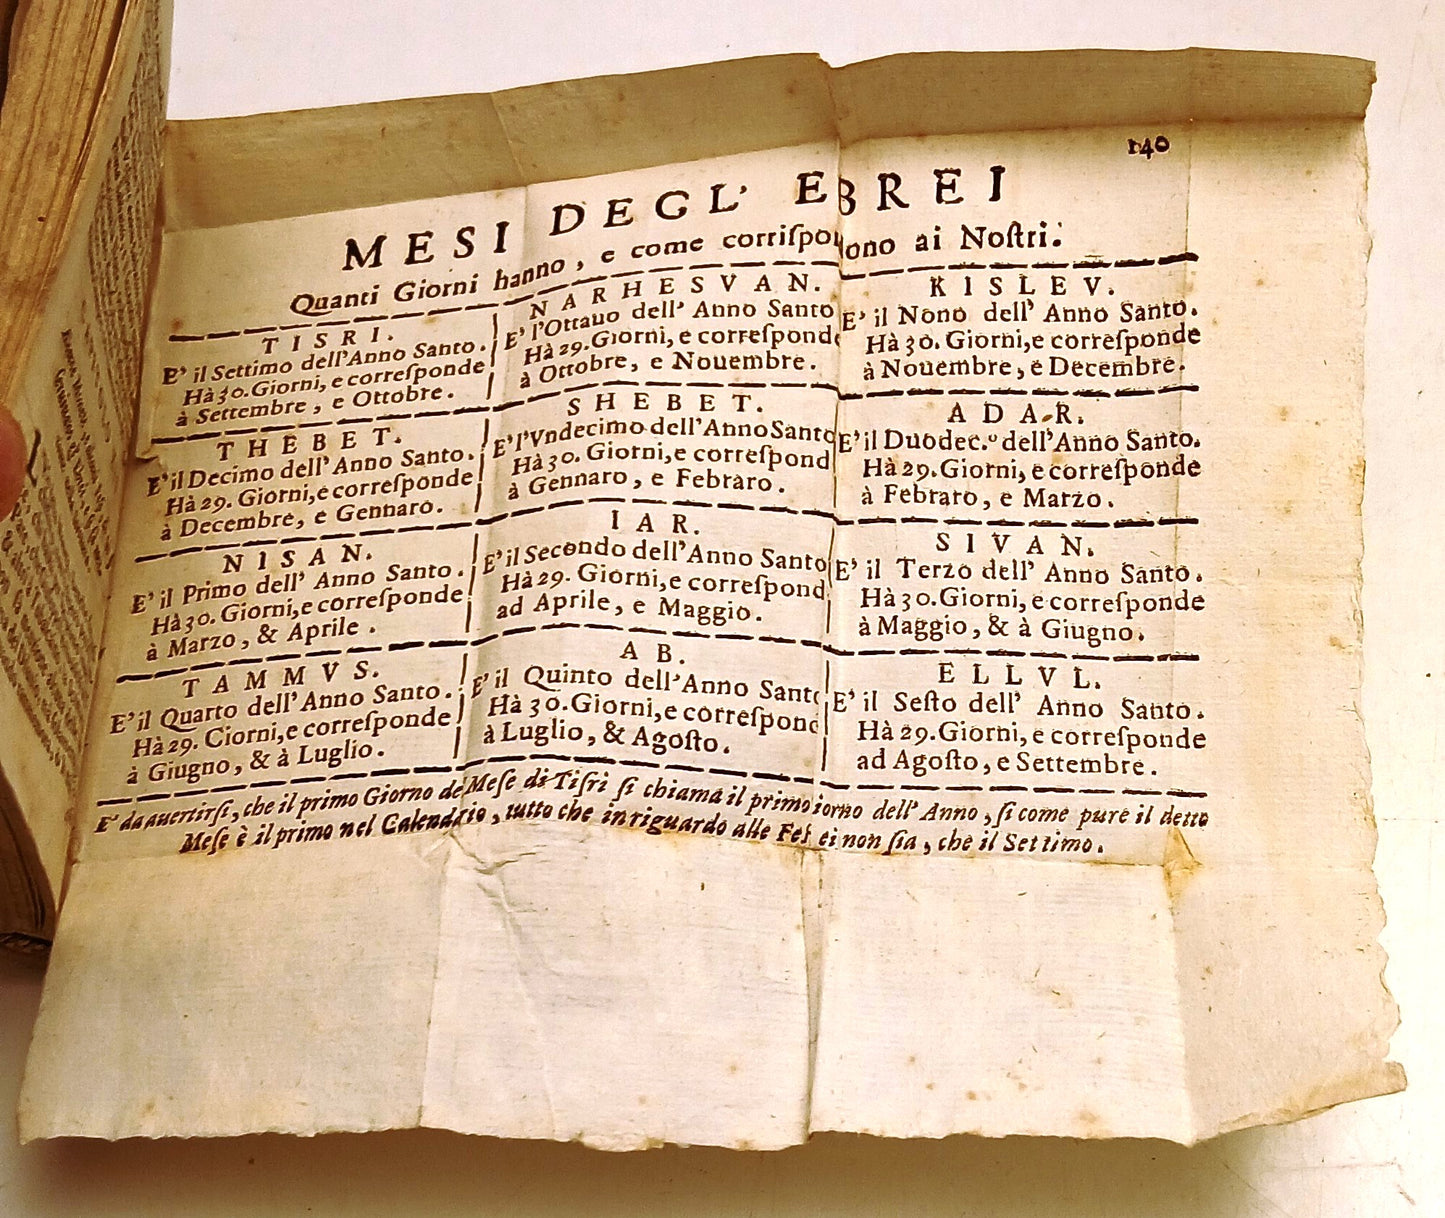 140
MESI DEGL' EBREI
Quanti Giorni hanno, e come corriſpondono ai Noſtri.
TISRI.
E' il Settimo dell'Anno Santo.
Hà 30. Giorni, e correſponde
à Settembre, e Ottobre.
NARHESVAN.
E' l'Ottauo dell' Anno Santo
Hà 29. Giorni, e correſponde
à Ottobre, e Nouembre.
KISLEV.
E' il Nono dell' Anno Santo.
Hà 30. Giorni, e correſponde
à Nouembre, e Decembre.
THEBET.
E' il Decimo dell' Anno Santo.
Hà 29. Giorni, e correſponde
à Decembre, e Gennaro.
SHEBET.
E' l'Vndecimo dell'Anno Santo
Hà 30. Giorni, e correſpond
à Gennaro, e Febraro.
ADAR.
E' il Duodec.º dell'Anno Santo.
Hà 29. Giorni, e correſponde
à Febraro, e Marzo.
NISAN.
E' il Primo dell' Anno Santo.
Hà 30. Giorni, e correſponde
à Marzo, & Aprile.
IAR.
E' il Secondo dell'Anno Santo
Hà 29. Giorni, e correſpond
ad Aprile, e Maggio.
SIVAN.
E' il Terzo dell' Anno Santo.
Hà 30. Giorni, e correſponde
à Maggio, & à Giugno.
TAMMVS.
E' il Quarto dell' Anno Santo.
Hà 29. Ciorni, e correſponde
à Giugno, & à Luglio.
AB.
E' il Quinto dell'Anno Santo
Hà 30. Giorni, e correſpond
à Luglio, & Agoſto.
ELLVL.
E' il Seſto dell' Anno Santo.
Hà 29. Giorni, e correſponde
ad Agoſto, e Settembre.
E' da auertirſi, che il primo Giorno del Meſe di Tiſri ſi chiama il primo iorno dell' Anno, ſi come pure il detto
Meſe è il primo nel Calendario, tutto che in riguardo alle Feſ ei non ſia, che il Settimo.